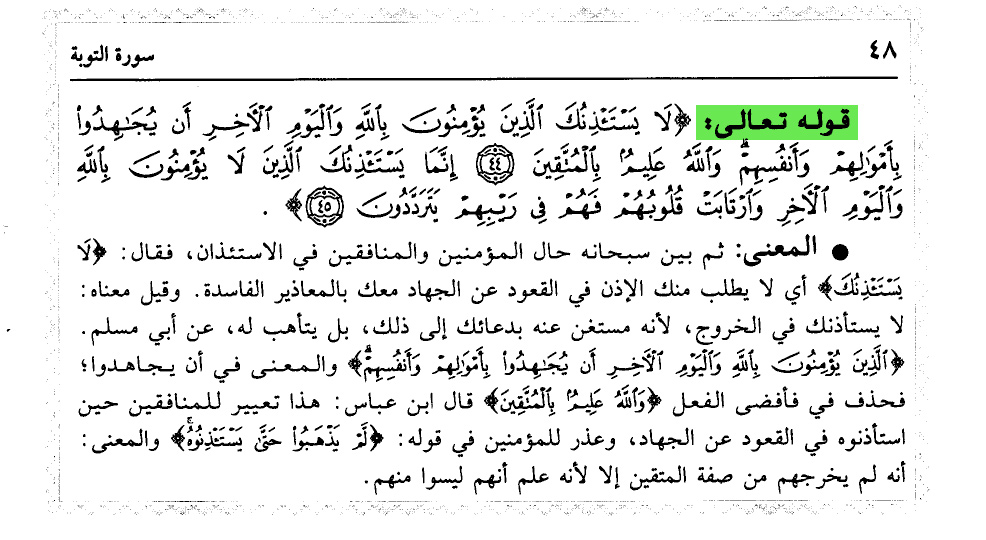 ٤٨ سورة التوبة
قوله تعالى: ﴿لَا يَسْتَـْٔذِنُكَ ٱلَّذِينَ يُؤْمِنُونَ بِٱللَّهِ وَٱلْيَوْمِ ٱلْـَٔاخِرِ أَن يُجَـٰهِدُوا۟
بِأَمْوَٰلِهِمْ وَأَنفُسِهِمْ ۗ وَٱللَّهُ عَلِيمٌۢ بِٱلْمُتَّقِينَ ٤٤ إِنَّمَا يَسْتَـْٔذِنُكَ ٱلَّذِينَ لَا يُؤْمِنُونَ بِٱللَّهِ
وَٱلْيَوْمِ ٱلْـَٔاخِرِ وَٱرْتَابَتْ قُلُوبُهُمْ فَهُمْ فِى رَيْبِهِمْ يَتَرَدَّدُونَ ٤٥﴾ .
● المعنى: ثم بين سبحانه حال المؤمنين والمنافقين في الاستئذان، فقال: ﴿لَا
يَسْتَـْٔذِنُكَ﴾ أي لا يطلب منك الإذن في القعود عن الجهاد معك بالمعاذير الفاسدة. وقيل معناه:
لا يستأذنك في الخروج، لأنه مستغن عنه بدعائك إلى ذلك، بل يتأهب له، عن أبي مسلم.
﴿ٱلَّذِينَ يُؤْمِنُونَ بِٱللَّهِ وَٱلْيَوْمِ ٱلْـَٔاخِرِ أَن يُجَـٰهِدُوا۟ بِأَمْوَٰلِهِمْ وَأَنفُسِهِمْ ۗ﴾ والمعنى في أن يجاهدوا؛
فحذف في فأفضى الفعل ﴿وَٱللَّهُ عَلِيمٌۢ بِٱلْمُتَّقِينَ﴾ قال ابن عباس: هذا تعيير للمنافقين حين
استأذنوه في القعود عن الجهاد، وعذر للمؤمنين في قوله: ﴿لَّمْ يَذْهَبُوا۟ حَتَّىٰ يَسْتَـْٔذِنُوهُ ۚ﴾ والمعنى:
أنه لم يخرجهم من صفة المتقين إلا لأنه علم أنهم ليسوا منهم.